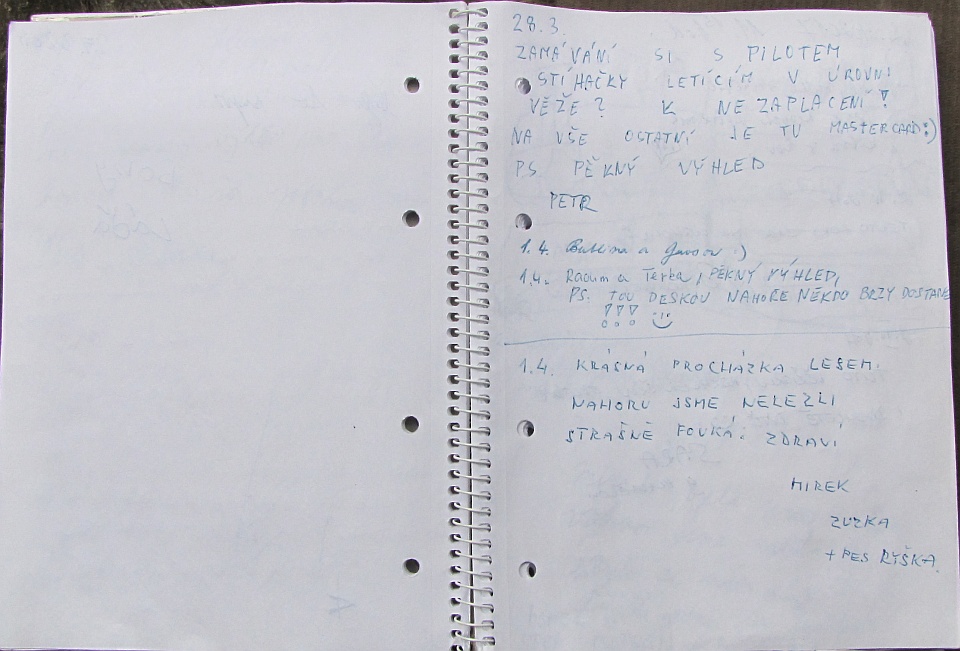 28.3.
ZAMÁVÁNÍ SI S PILOTEM
STÍHAČKY LETÍCÍM V ÚROVNI
VĚŽE? K NEZAPLACENÍ!
NA VŠE OSTATNÍ JE TU MASTERCARD:)
P.S. PĚKNÝ VÝHLED
PETR
1.4. Bublina a :)
1.4. Radim a Terka, PĚKNÝ VÝHLED,
PS. TOU DESKOU NAHOŘE NĚKDO BRZY DOSTANE
!!!
1.4. KRÁSNÁ PROCHÁZKA LESEM.
NAHORU JSME NELEZLI
STRAŠNĚ FOUKÁ. ZDRAVÍ
MIREK
ZUZKA
+ PES RYŠKA.